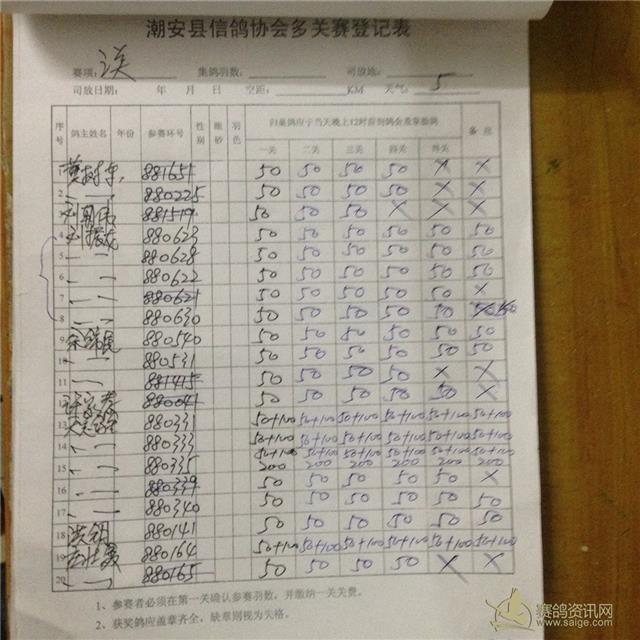 潮安县信鸽协会多关赛登记表
赛项： 集鸽羽数： 司放地：
司放日期： 年 月 日 空距： KM 天气： 5
序号 鸽主姓名 年份 参赛环号 性别 眼砂 羽色 归巢鸽应于当天晚上12时前到鸽会盖章验鸽 备注
一关 二关 三关 四关 五关
1 881651 50 50 50 50 × ×
2 880225 50 50 50 50 × ×
3 881519 50 50 50 × × ×
4 880623 50 50 50 50 50 50
5 880628 50 50 50 50 50 50
6 880622 50 50 50 50 50 50
7 880621 50 50 50 50 50 ×
8 880630 50 50 50 50 50
9 880540 50 50 50 50 50 50
10 880531 50 50 50 50 50 50
11 881415 50 50 50 50 × ×
12 880041 50 50 50 50 50 ×
13 880331 50+100 50+100 50+100 50+100 50+100 50+100
14 880333 50+100 50+100 50+100 50+100 50+100 50+100
15 880335 50+100 50+100 50+100 50+100 50+100 50+100
200 200 200 200 200 200
16 880339 50 50 50 50 50 ×
17 880340 50 50 50 50 50 50
18 880141 50 50 50 50 50 50
19 880164 50+100 50+100 50+100 50+100 50+100 50+100
20 880165 50 50 50 50 × ×
1、参赛者必须在第一关确认参赛羽数，并缴纳一关关费。
2、获奖鸽应盖章齐全，缺章则视为失格。
赛鸽资讯网
www.saige.com